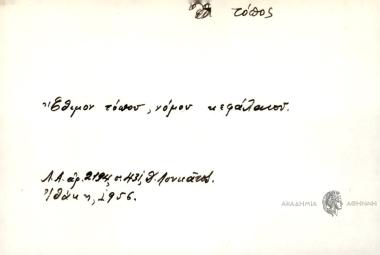 τόπος
Ἔθιμον τόπου, νόμου κεφάλαιον.
Λ.Α. ἀρ. 2194, σ. 431, Δ. Λουκᾶτος.
Ἰθάκη, 1956.
ΑΚΑΔΗΜΙΑ ΑΘΗΝΩΝ